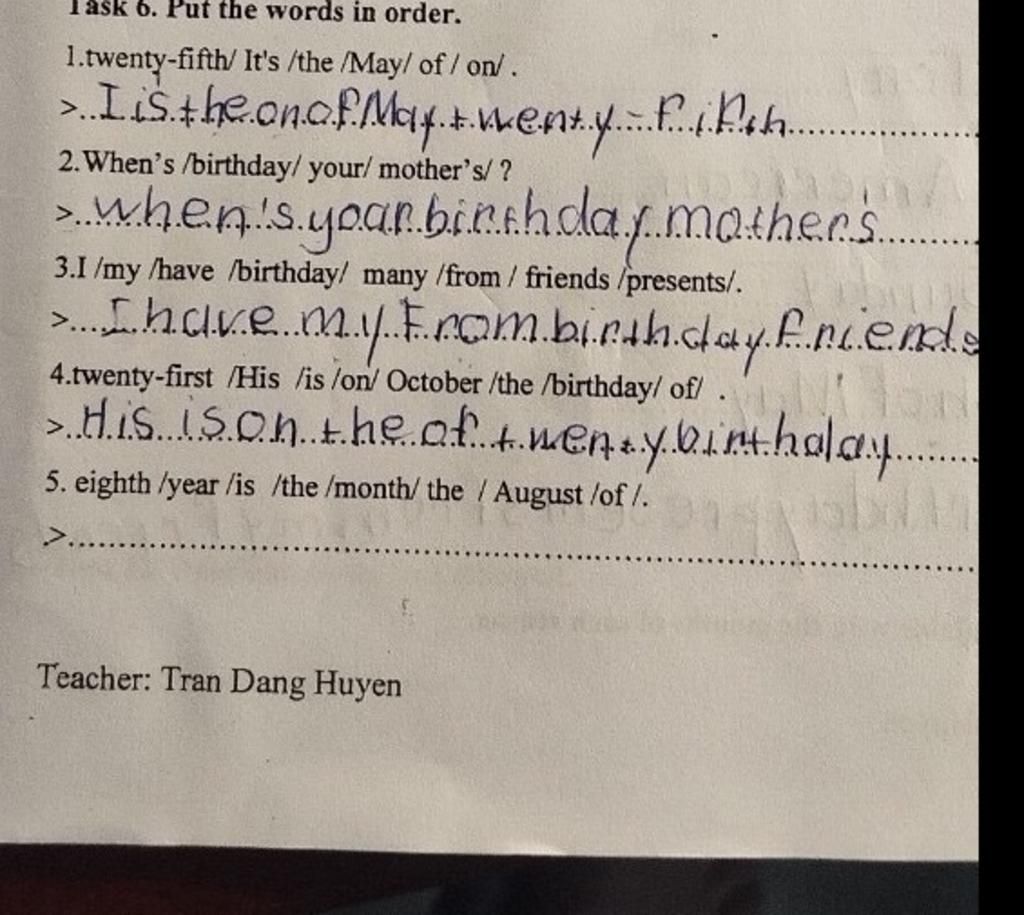 Task 6. Put the words in order.
1.twenty-fifth/ It's /the /May/ of / on/ .
>..I is the on of May twenty-fifth
2.When's /birthday/ your/ mother's/ ?
>..when's your birthday mother's
3.I /my /have /birthday/ many /from / friends /presents/.
>...I have my from birthday friends
4.twenty-first /His /is /on/ October /the /birthday/ of/ .
>..His is on the of twenty birthday
5. eighth /year /is /the /month/ the / August /of /.
>
Teacher: Tran Dang Huyen